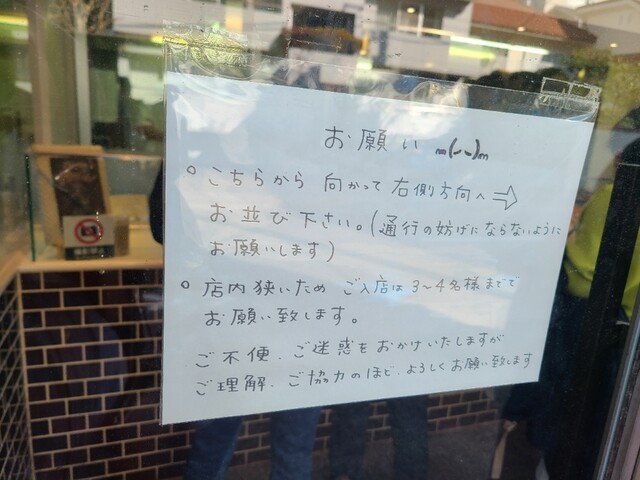 お願い m(--)m
○ こちらから 向かって 右側方向へ ⇨
お並び下さい。(通行の妨げにならないように
お願いします)
○ 店内狭いため ご入店は3~4名様までで
お願い致します。
ご不便、ご迷惑をおかけいたしますが
ご理解、ご協力のほど、よろしくお願い致します